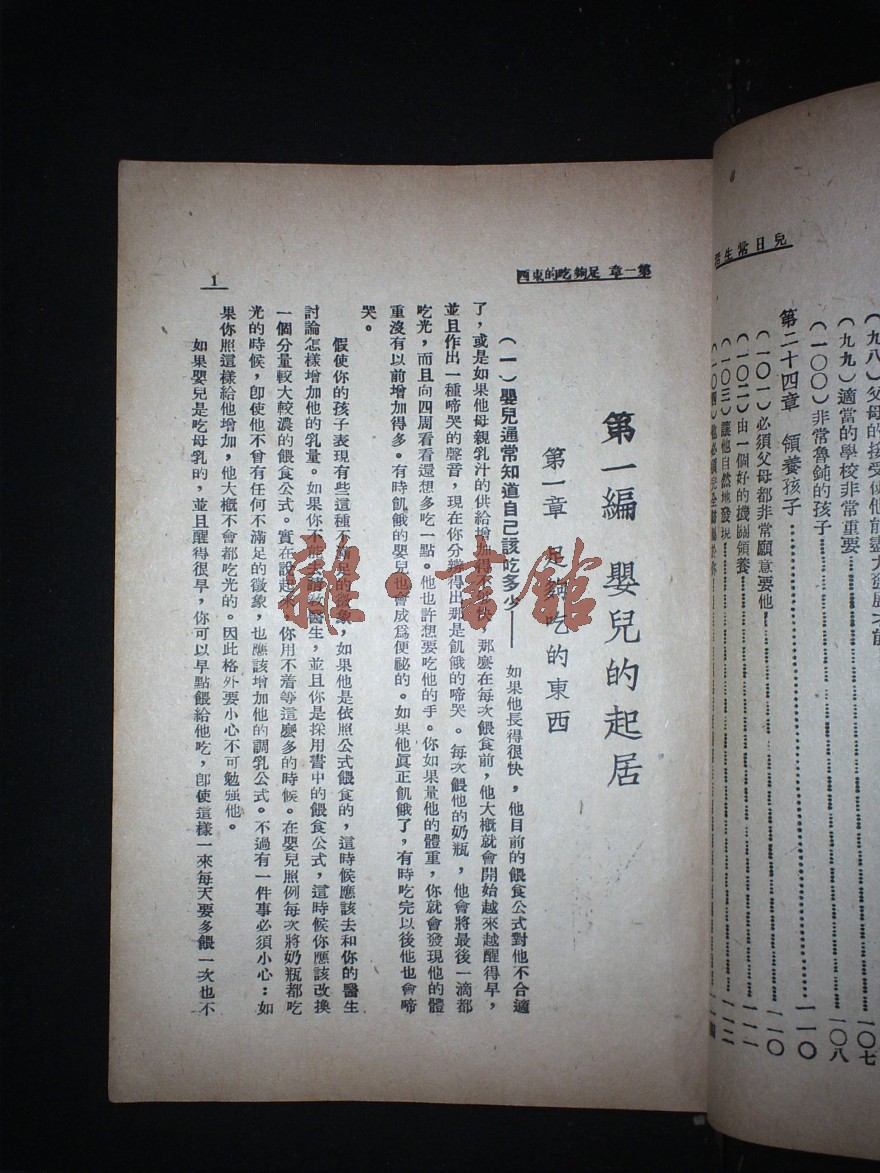 兒日常生活
(九九)適當的學校非常重要 一〇七
(一〇〇)非常魯鈍的孩子 一〇八
第二十四章 領養孩子 一一〇
(一〇一)必須父母都非常願意要他 一一〇
(一〇二)由一個好的機關領養 一一一
(一〇三)讓他自然地發現 一一二
第一章 足夠吃的東西
1
第一編 嬰兒的起居
第一章 足夠吃的東西
(一)嬰兒通常知道自己該吃多少—— 如果他長得很快,他目前的餵食公式對他不合適
了,或是如果他母親乳汁的供給增加得不夠快,那麼在每次餵食前,他大概就會開始越來越醒得早,
並且作出一種啼哭的聲音,現在你分辨得出那是飢餓的啼哭。每次餵他的奶瓶,他會將最後一滴都
吃光,而且向四周看看還想多吃一點。他也許想要吃他的手。你如果量他的體重,你就會發現他的體
重沒有以前增加得多。有時飢餓的嬰兒也會成爲便祕的。如果他眞正飢餓了,有時吃完以後他也會啼
哭。
假使你的孩子表現有些這種不滿足的徵象,如果他是依照公式餵食的,這時候應該去和你的醫生
討論怎樣增加他的乳量。如果你不能去請敎醫生,並且你是採用書中的餵食公式,這時候你應該改換
一個分量較大較濃的餵食公式。實在說起來,你用不着等這麼多的時候。在嬰兒照例每次將奶瓶都吃
光的時候,卽使他不曾有任何不滿足的徵象,也應該增加他的調乳公式。不過有一件事必須小心:如
果你照這樣給他增加,他大概不會都吃光的。因此格外要小心不可勉强他。
如果嬰兒是吃母乳的,並且醒得很早,你可以早點餵給他吃,卽使這樣一來每天要多餵一次也不
雜·書館